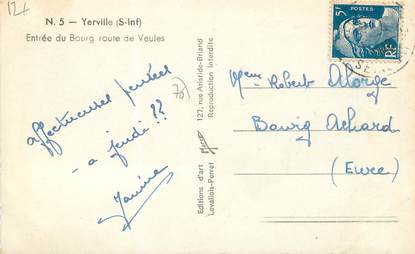 12
N. 5 — Yerville (S-Inf)
Entrée du Bourg route de Veules
affectueuses pensées
- a jeudi !!
Janine
78)
Editions d'art
Levallois-Perret
127, rue Aristide-Briand
Reproduction interdite
5F
POSTES
RF
Mme Robert Alorge
Bourg Achard
(Eure)